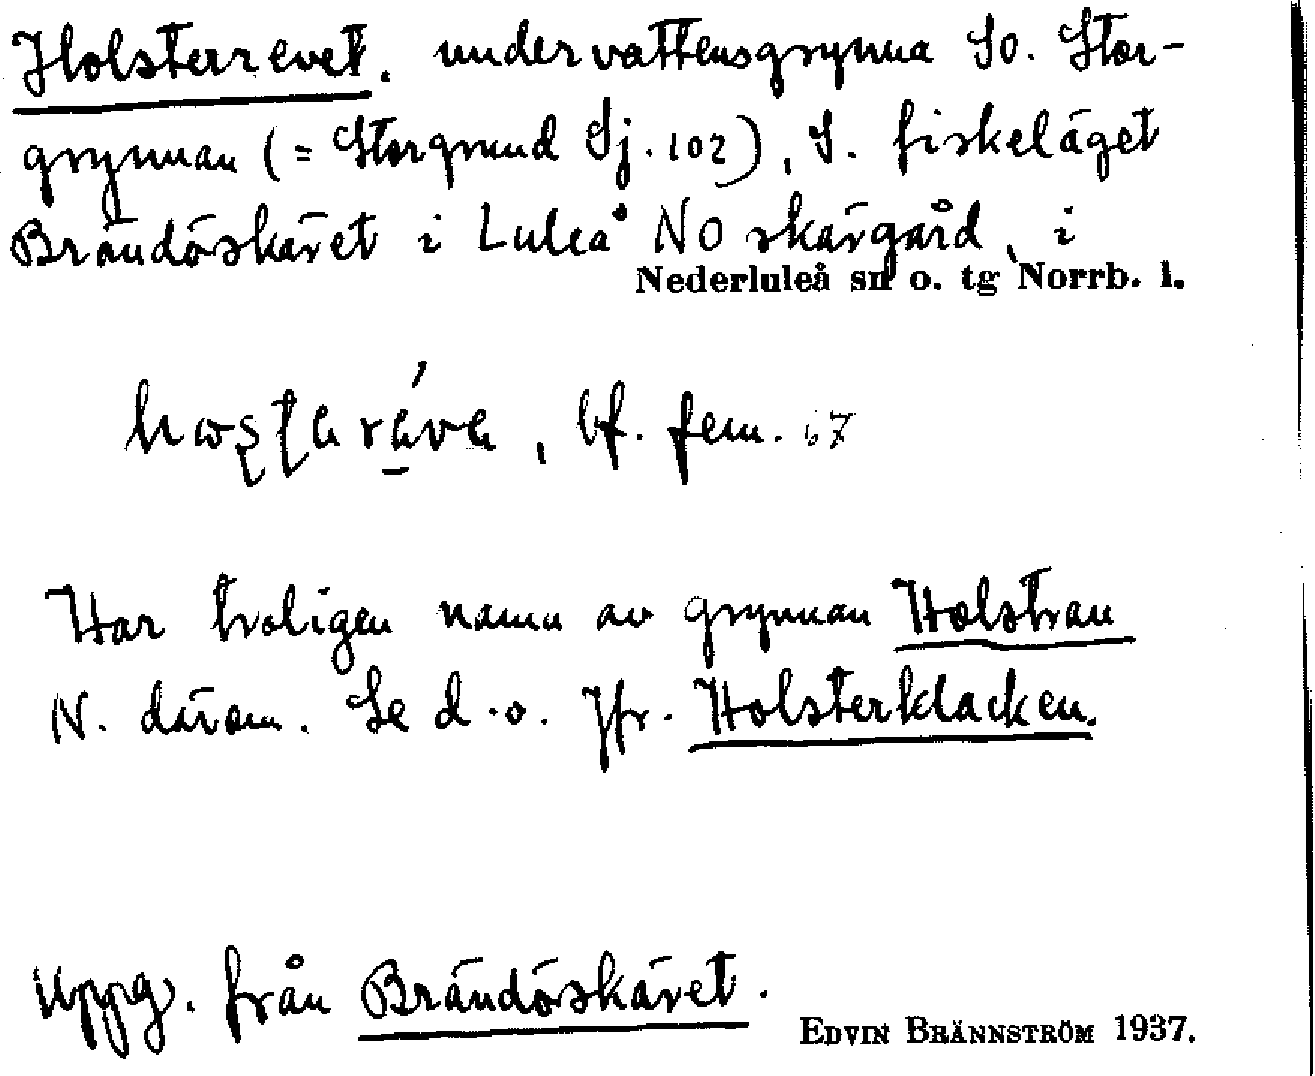 Holsterrevet. undervattensgrynna SO. Stor-
grynnan (= Storgrund Sj. 102), S. fiskeläget
Brändöskäret i Luleå NO skärgård, i
Nederluleå sn o. tg Norrb. l.
bf. fem.
Har troligen namn av grynnan Holstran
N. därom. Se d.o. Jfr. Holsterklacken.
Uppg. från Brändöskäret.
EDVIN BRÄNNSTRÖM 1937.